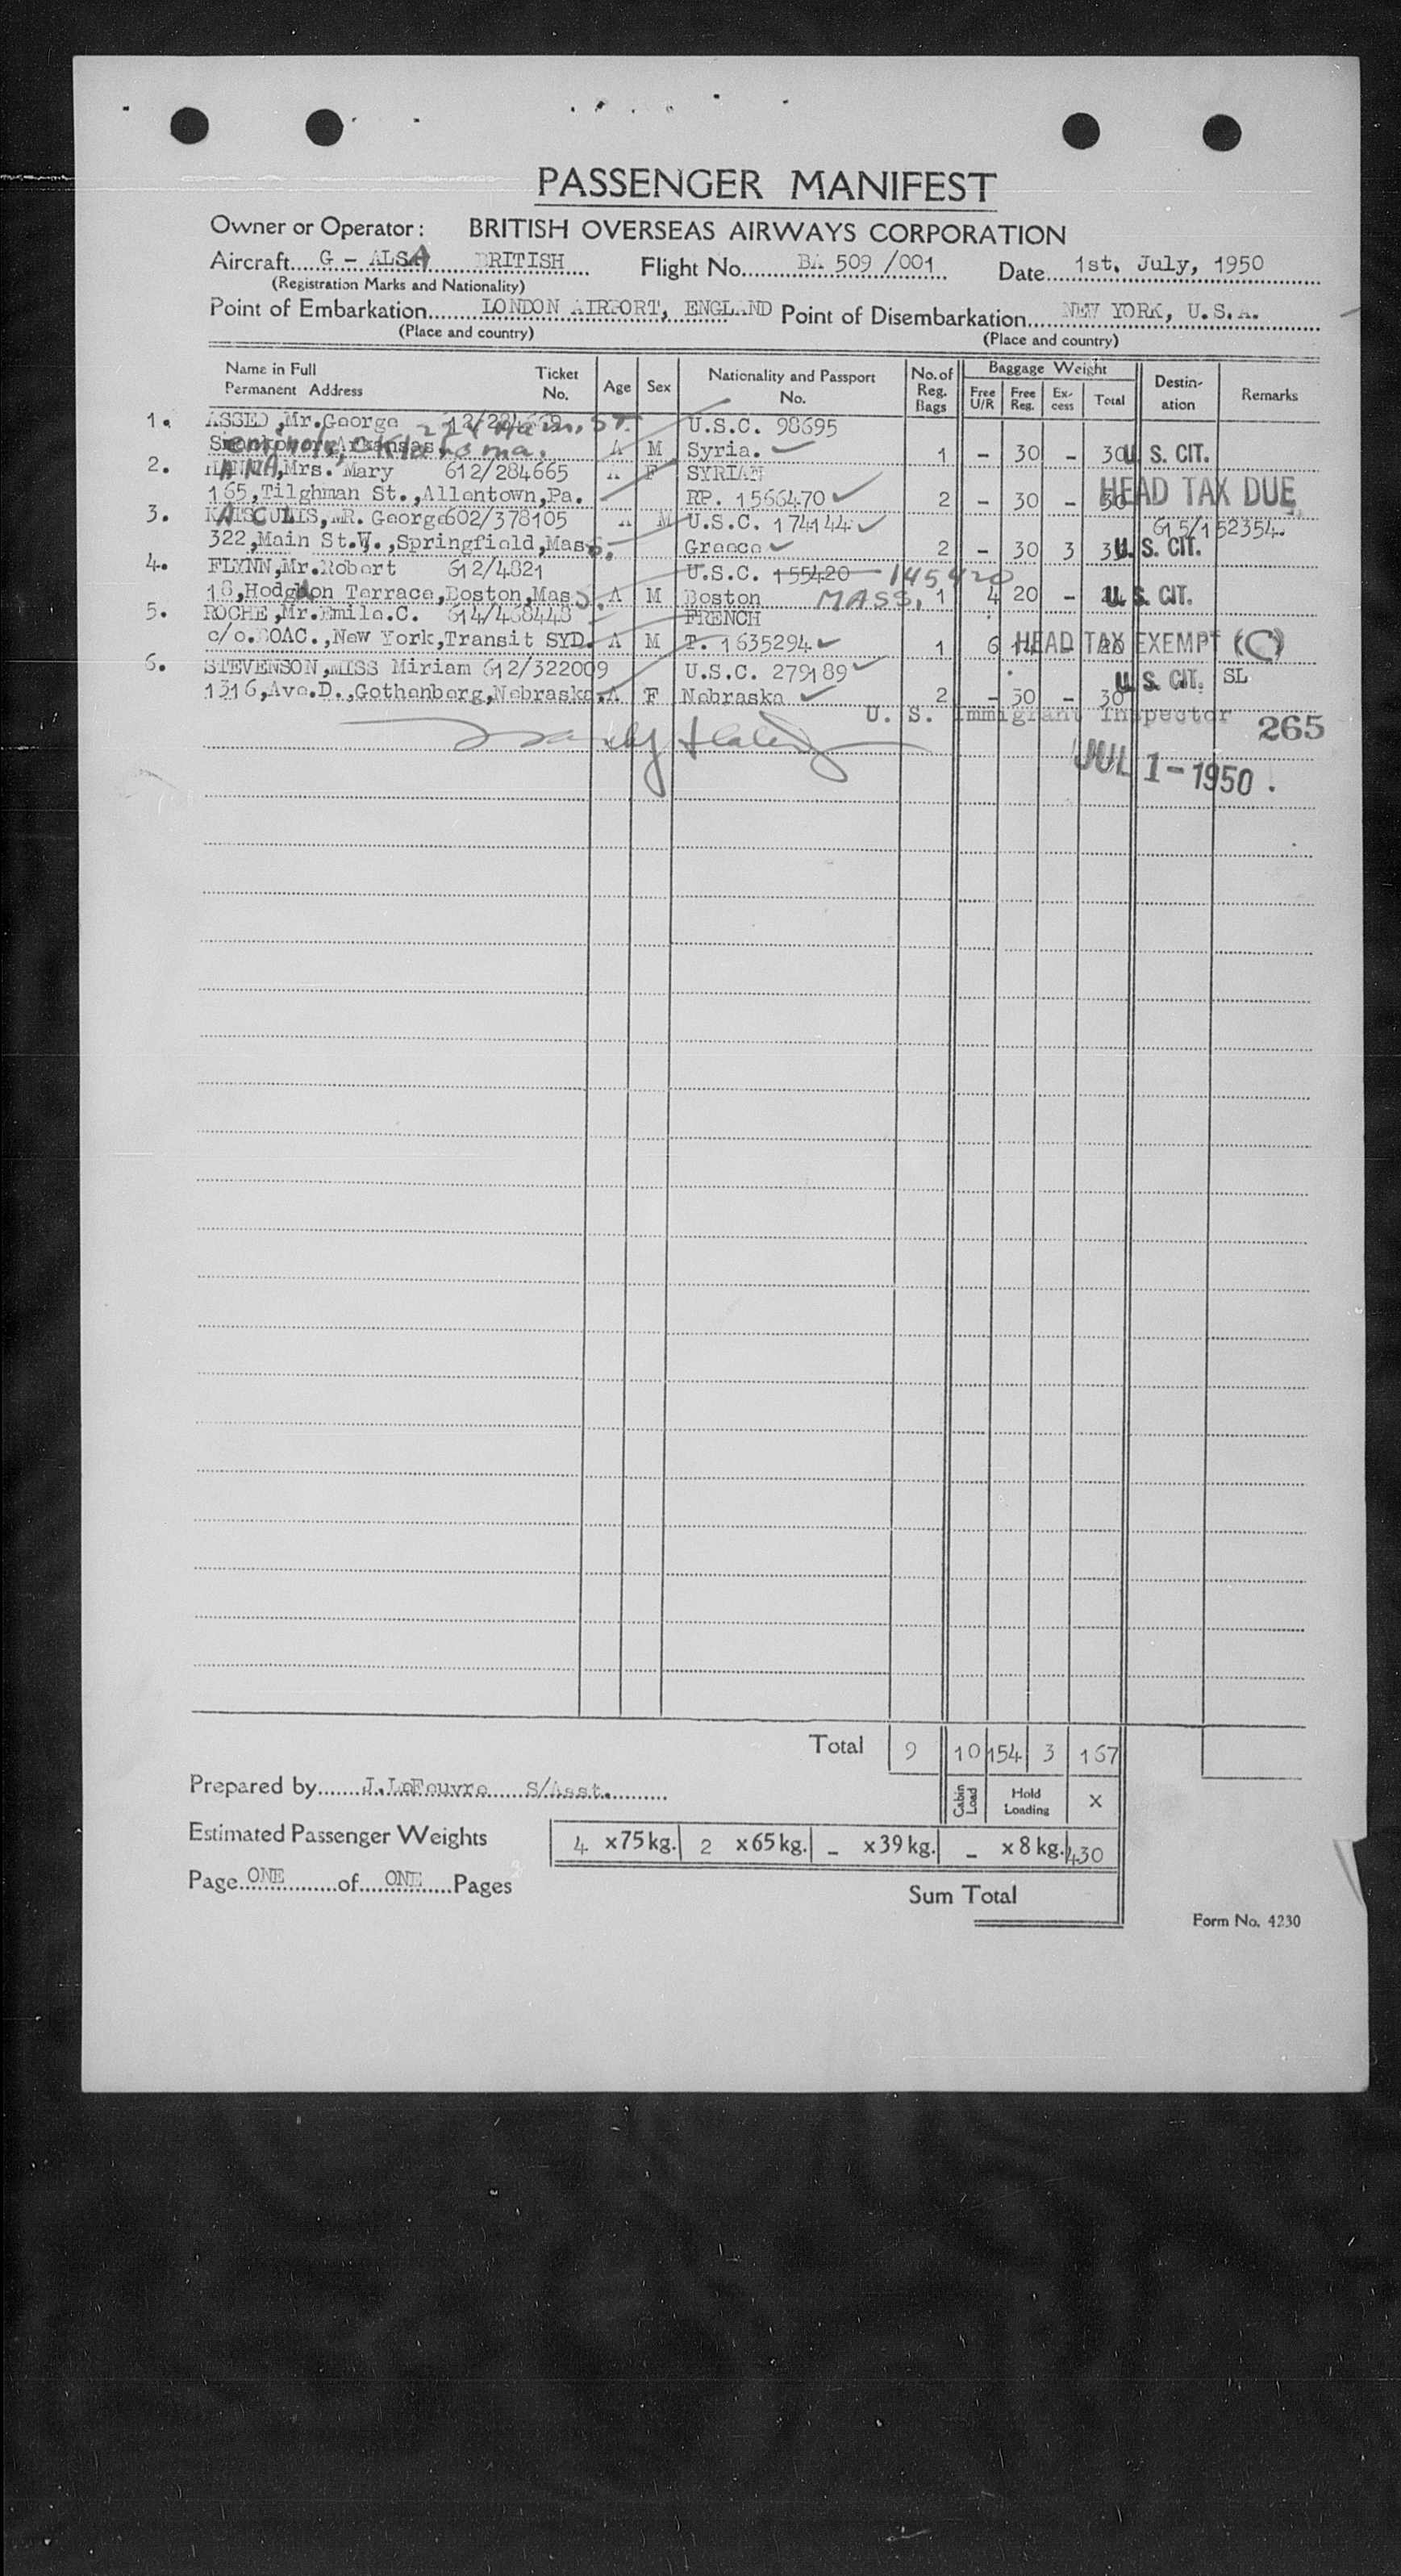 PASSENGER MANIFEST
Owner or Operator : BRITISH OVERSEAS AIRWAYS CORPORATION
Aircraft G - ALSA BRITISH Flight No. BA 509 /001 Date 1st. July, 1950
(Registration Marks and Nationality)
Point of Embarkation LONDON AIRPORT, ENGLAND Point of Disembarkation NEW YORK, U.S.A.
(Place and country) (Place and country)
Name in Full Ticket Age Sex Nationality and Passport No. of Baggage Weight Destin- Remarks
Permanent Address No. No. Reg. Bags Free U/R Free Reg. Ex-cess Total ation
1. ASSED, Mr. George Main St. U.S.C. 98695
Oklahoma. A M Syria. ✓ 1 - 30 - 30 U.S. CIT.
2. HANNA, Mrs. Mary 612/284665 A F SYRIAN HEAD TAX DUE
165, Tilghman St., Allentown, Pa. RP. 1566470 ✓ 2 - 30 - 30
3. Mr. George 602/378105 A M U.S.C. 174144 ✓ 615/152354.
322, Main St.W., Springfield, Mass. Greece ✓ 2 - 30 3 33 U.S. CIT.
4. FLYNN, Mr. Robert 612/4821 U.S.C. 155420 145420
18, Hodgdon Terrace, Boston, Mass. A M Boston MASS. 1 4 20 - 24 U.S. CIT.
5. ROCHE, Mr. Emile. C. 614/468448 FRENCH
c/o. BOAC., New York, Transit SYD. A M T. 1635294 ✓ 1 6 14 - 20 HEAD TAX EXEMPT (C)
6. STEVENSON, MISS Miriam 612/322009 U.S.C. 279189 ✓ U.S. CIT. SL
1316, Ave.D., Gothenberg, Nebraska. A F Nebraska ✓ 2 - 30 - 30
U. S. Immigrant Inspector 265
JUL 1 - 1950
Total 9 10 154 3 167
Prepared by J. LeFeuvre S/Asst. Cabin Load Hold Loading X
Estimated Passenger Weights 4 x 75 kg. 2 x 65 kg. - x 39 kg. - x 8 kg. 430
Page ONE of ONE Pages
Sum Total
Form No. 4230